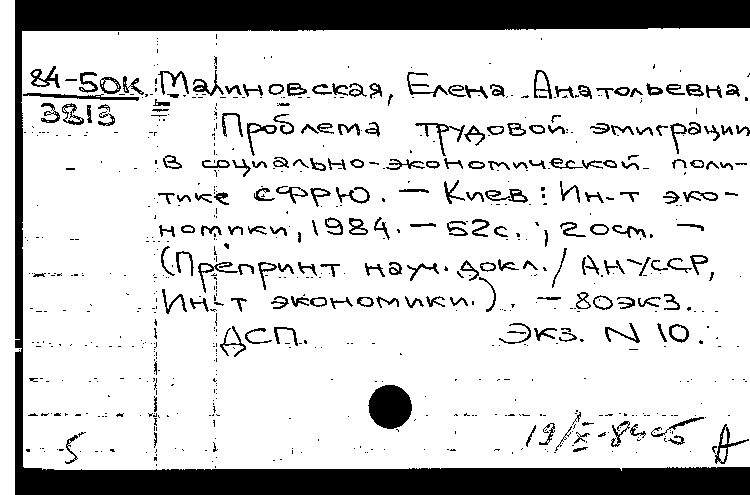 84-50К Малиновская, Елена Анатольевна.
3813
Проблема трудовой эмиграции
в социально-экономической поли-
тике СФРЮ. — Киев : Ин-т эко-
номики, 1984. — 52с. ; 20см. —
(Препринт науч. докл. / АН УССР,
Ин-т экономики.). — 80экз.
ДСП. Экз. N 10.
19/X-84
5